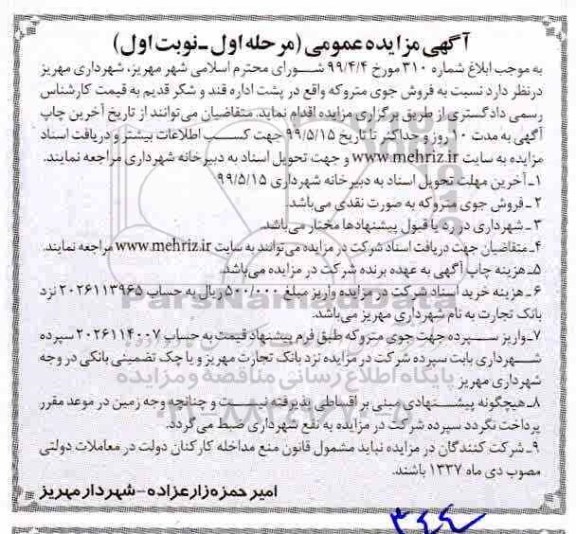 آگهی مزایده عمومی (مرحله اول ـ نوبت اول)
به موجب ابلاغ شماره ۳۱۰ مورخ ۹۹/۴/۴ شورای محترم اسلامی شهر مهریز، شهرداری مهریز
درنظر دارد نسبت به فروش جوی متروکه واقع در پشت اداره قند و شکر قدیم به قیمت کارشناس
رسمی دادگستری از طریق برگزاری مزایده اقدام نماید. متقاضیان می‌توانند از تاریخ آخرین چاپ
آگهی به مدت ۱۰ روز و حداکثر تا تاریخ ۹۹/۵/۱۵ جهت کسب اطلاعات بیشتر و دریافت اسناد
مزایده به سایت www.mehriz.ir و جهت تحویل اسناد به دبیرخانه شهرداری مراجعه نمایند.
۱ـ آخرین مهلت تحویل اسناد به دبیرخانه شهرداری ۹۹/۵/۱۵
۲ـ فروش جوی متروکه به صورت نقدی می‌باشد.
۳ـ شهرداری در رد یا قبول پیشنهادها مختار می‌باشد.
۴ـ متقاضیان جهت دریافت اسناد شرکت در مزایده می‌توانند به سایت www.mehriz.ir مراجعه نمایند.
۵ـ هزینه چاپ آگهی به عهده برنده شرکت در مزایده می‌باشد.
۶ـ هزینه خرید اسناد شرکت در مزایده واریز مبلغ ۵۰۰/۰۰۰ ریال به حساب ۲۰۲۶۱۱۳۹۶۵ نزد
بانک تجارت به نام شهرداری مهریز می‌باشد.
ParsNamadData
۷ـ واریز سپرده جهت جوی متروکه طبق فرم پیشنهاد قیمت به حساب ۲۰۲۶۱۱۴۰۰۷ سپرده
شهرداری بابت سپرده شرکت در مزایده نزد بانک تجارت مهریز و یا چک تضمینی بانکی در وجه
شهرداری مهریز
پایگاه اطلاع رسانی مناقصه و مزایده
۸ـ هیچگونه پیشنهادی مبنی بر اقساطی پذیرفته نیست و چنانچه وجه زمین در موعد مقرر
پرداخت نگردد سپرده شرکت در مزایده به نفع شهرداری ضبط می‌گردد.
۹ـ شرکت کنندگان در مزایده نباید مشمول قانون منع مداخله کارکنان دولت در معاملات دولتی
مصوب دی ماه ۱۳۳۷ باشند.
امیر حمزه زارعزاده - شهردار مهریز